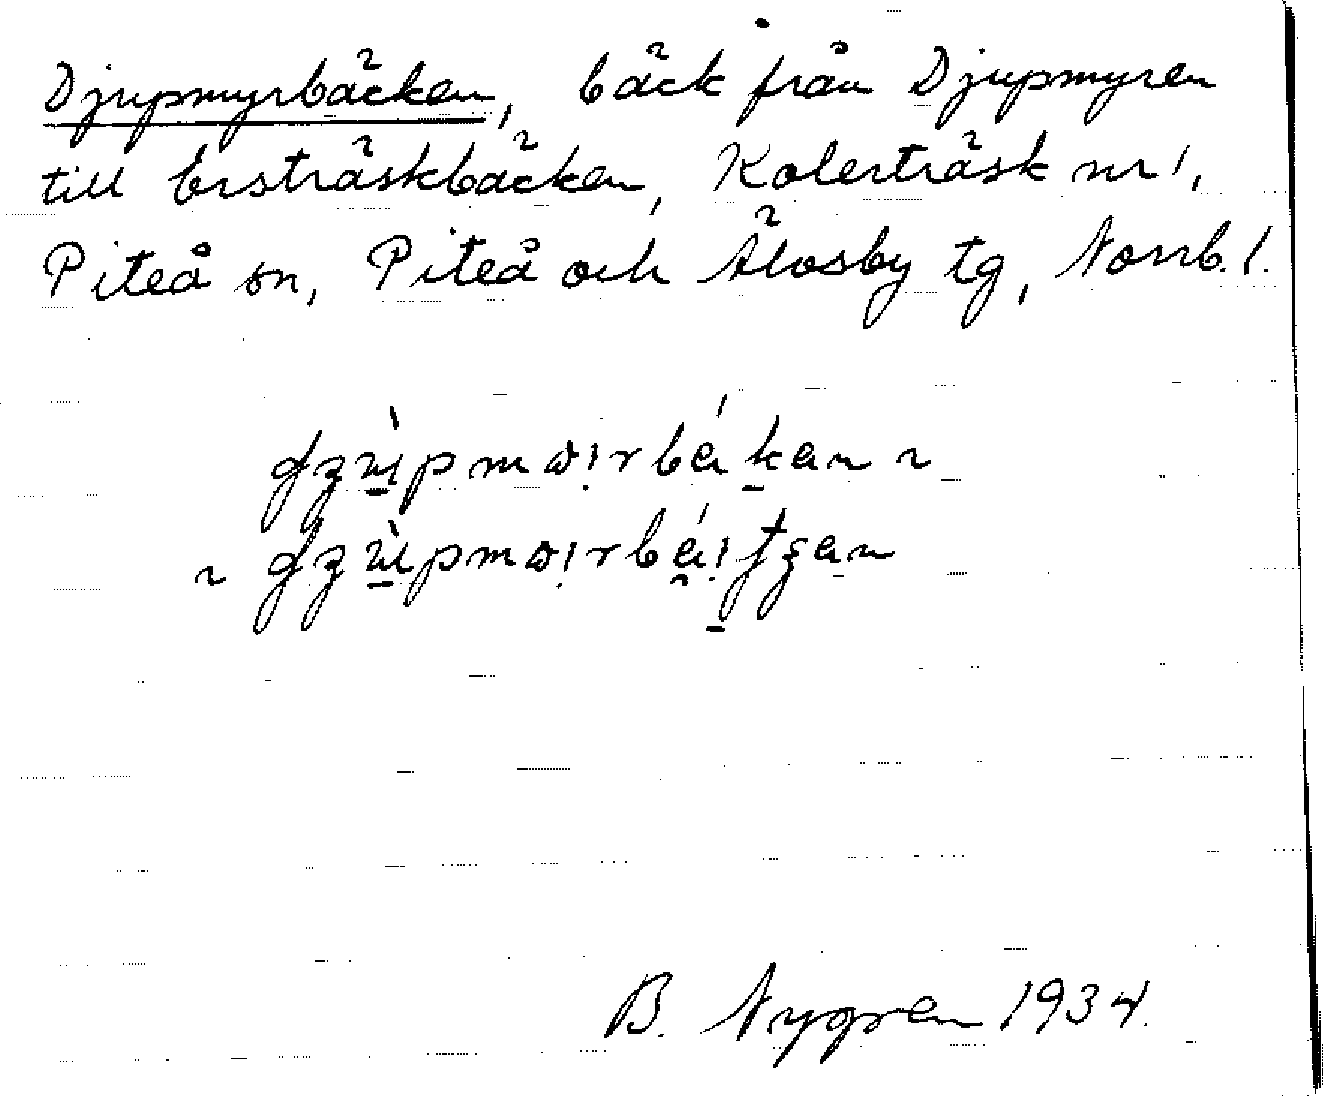 Djupmyrbäcken, bäck från Djupmyren
till Ersträskbäcken, Kolerträsk nr 1,
Piteå sn, Piteå och Älvsby tg, Norrb. l.
B. Nygren 1934.